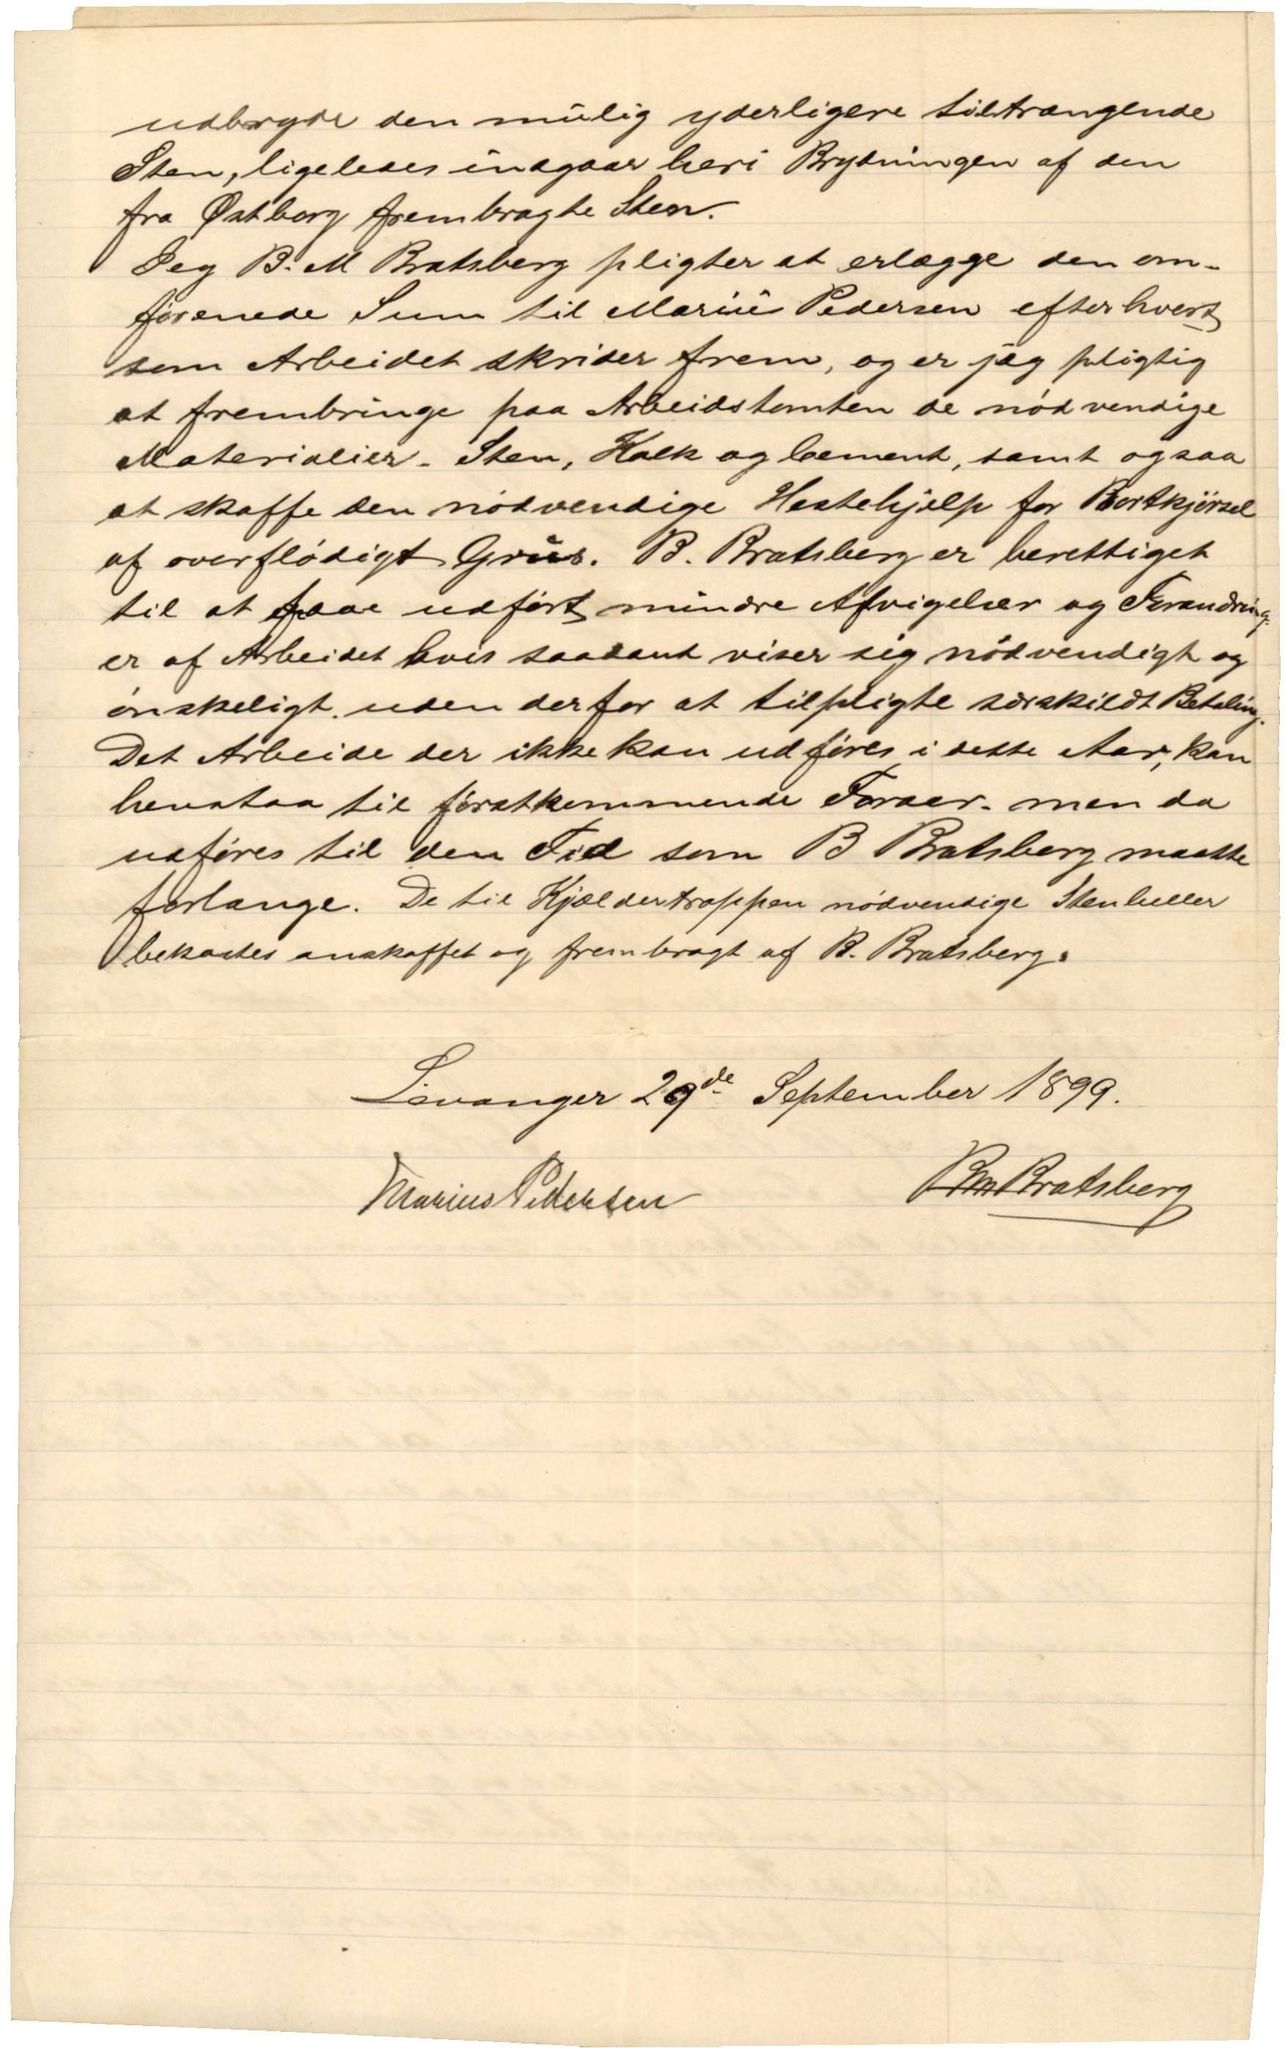 udbryde den mulig yderligere tiltrængende
Sten, ligeledes indgaar heri Brydningen af den
fra Østborg frembragte Sten.
Jeg B. M Bratsberg pligter at erlægge den om-
forenede Sum til Mariu Pedersen efterhvert
som Arbeidet skrider frem, og er jeg pligtig
at frembringe paa Arbeidstomten de nödvendige
Materialier. Sten, Kalk og Cement, samt ogsaa
at skaffe den nödvendige Hestehjelp for Bortkjörsel
af overflödigt Grus. B. Bratsberg er berettiget
til at faae udfört mindre Afvigelser og Forandring-
er af Arbeidet hvis saadant viser sig nödvendigt og
önskeligt. uden derfor at tilpligte särskildt Betaling.
Det Arbeide der ikke kan udföres i dette Aar, kan
henstaa til förstkommende Foraar. men da
udföres til den Tid som B Bratsberg maatte
forlange. De til Kjældertrappen nödvendige Stenheller
bekostes anskaffet og frembragt af B. Bratsberg.
Levanger 29de September 1899.
Marius Pedersen BMBratsberg